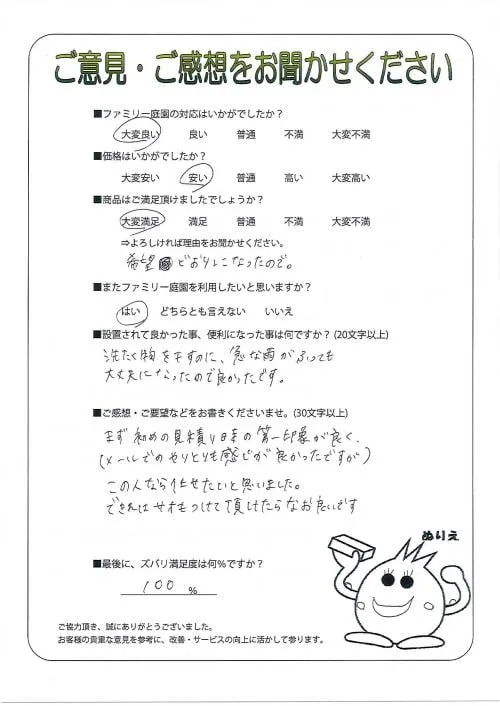 ご意見・ご感想をお聞かせください
■ファミリー庭園の対応はいかがでしたか？
大変良い 良い 普通 不満 大変不満
■価格はいかがでしたか？
大変安い 安い 普通 高い 大変高い
■商品はご満足頂けましたでしょうか？
大変満足 満足 普通 不満 大変不満
⇒よろしければ理由をお聞かせください。
希望どおりになったので。
■またファミリー庭園を利用したいと思いますか？
はい どちらとも言えない いいえ
■設置されて良かった事、便利になった事は何ですか？(20文字以上)
洗たく物を干すのに、急な雨がふっても
大丈夫になったので良かったです。
■ご感想・ご要望などをお書きくださいませ。(30文字以上)
まず初めの見積り日の第一印象が良く、
(メールでのやりとりも感じが良かったですが)
この人なら任せたいと思いました。
できればサオもつけて頂けたらなお良いです
ぬりえ
■最後に、ズバリ満足度は何％ですか？
100 ％
ご協力頂き、誠にありがとうございました。
お客様の貴重な意見を参考に、改善・サービスの向上に活かして参ります。